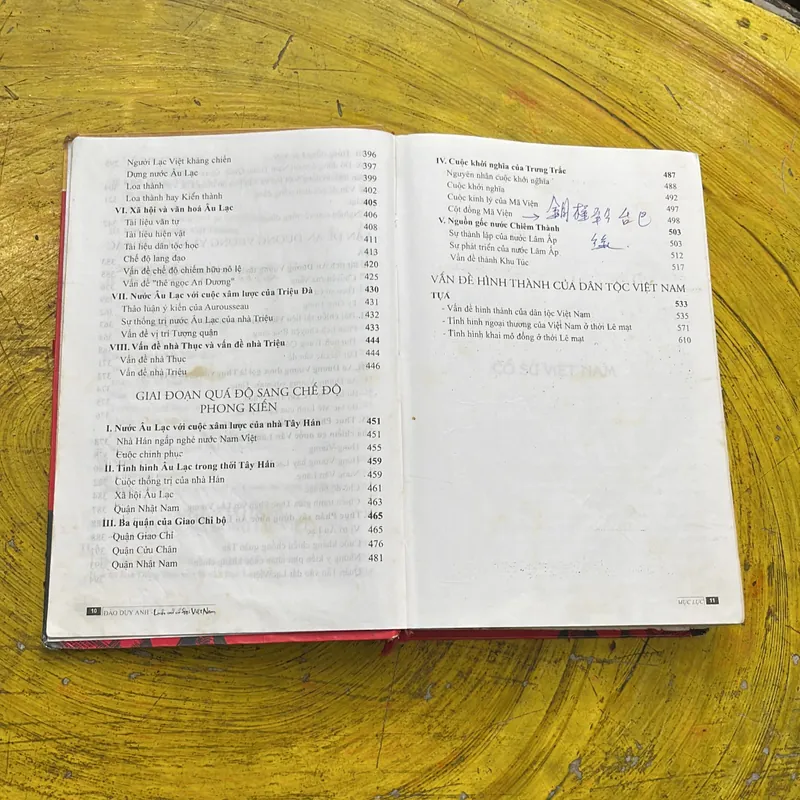 Người Lạc Việt kháng chiến 396
Dựng nước Âu Lạc 397
Loa thành 399
Loa thành hay Kiển thành 402
VI. Xã hội và văn hoá Âu Lạc 405
Tài liệu văn tự 406
Tài liệu hiện vật 408
Tài liệu dân tộc học 411
Chế độ lang đạo 413
Vấn đề chế độ chiếm hữu nô lệ 420
Vấn đề "thẻ ngọc An Dương" 425
VII. Nước Âu Lạc với cuộc xâm lược của Triệu Đà 430
Thảo luận ý kiến của Aurousseau 431
Sự thống trị nước Âu Lạc của nhà Triệu 432
Vấn đề vị trí Tượng quận 433
VIII. Vấn đề nhà Thục và vấn đề nhà Triệu 444
Vấn đề nhà Thục 444
Vấn đề nhà Triệu 446
GIAI ĐOẠN QUÁ ĐỘ SANG CHẾ ĐỘ
PHONG KIẾN
I. Nước Âu Lạc với cuộc xâm lược của nhà Tây Hán 451
Nhà Hán ngấp nghé nước Nam Việt 451
Cuộc chinh phục 455
II. Tình hình Âu Lạc trong thời Tây Hán 459
Cuộc thống trị của nhà Hán 459
Xã hội Âu Lạc 461
Quận Nhật Nam 463
III. Ba quận của Giao Chỉ bộ 465
Quận Giao Chỉ 465
Quận Cửu Chân 476
Quận Nhật Nam 481
10 ĐÀO DUY ANH - Lịch sử cổ đại Việt Nam
IV. Cuộc khởi nghĩa của Trưng Trắc 487
Nguyên nhân cuộc khởi nghĩa 488
Cuộc khởi nghĩa 492
Cuộc kinh lý của Mã Viện 497
Cột đồng Mã Viện 498
V. Nguồn gốc nước Chiêm Thành 503
Sự thành lập của nước Lâm Ấp 503
Sự phát triển của nước Lâm Ấp 512
Vấn đề thành Khu Túc 517
VẤN ĐỀ HÌNH THÀNH CỦA DÂN TỘC VIỆT NAM
TỰA 533
- Vấn đề hình thành của dân tộc Việt Nam 535
- Tình hình ngoại thương của Việt Nam ở thời Lê mạt 571
- Tình hình khai mỏ đồng ở thời Lê mạt 610
MỤC LỤC 11